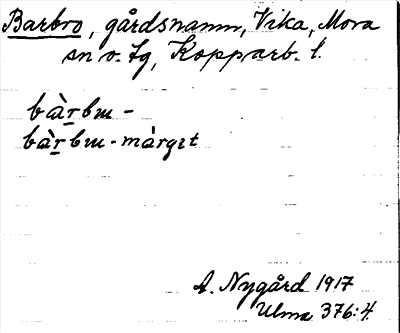 Barbro, gårdsnamn, Vika, Mora
sn o. tg, Kopparb. l.
bàrbu -
bàrbu - màrgɪt
A. Nygård 1917
Ulma 376:4.